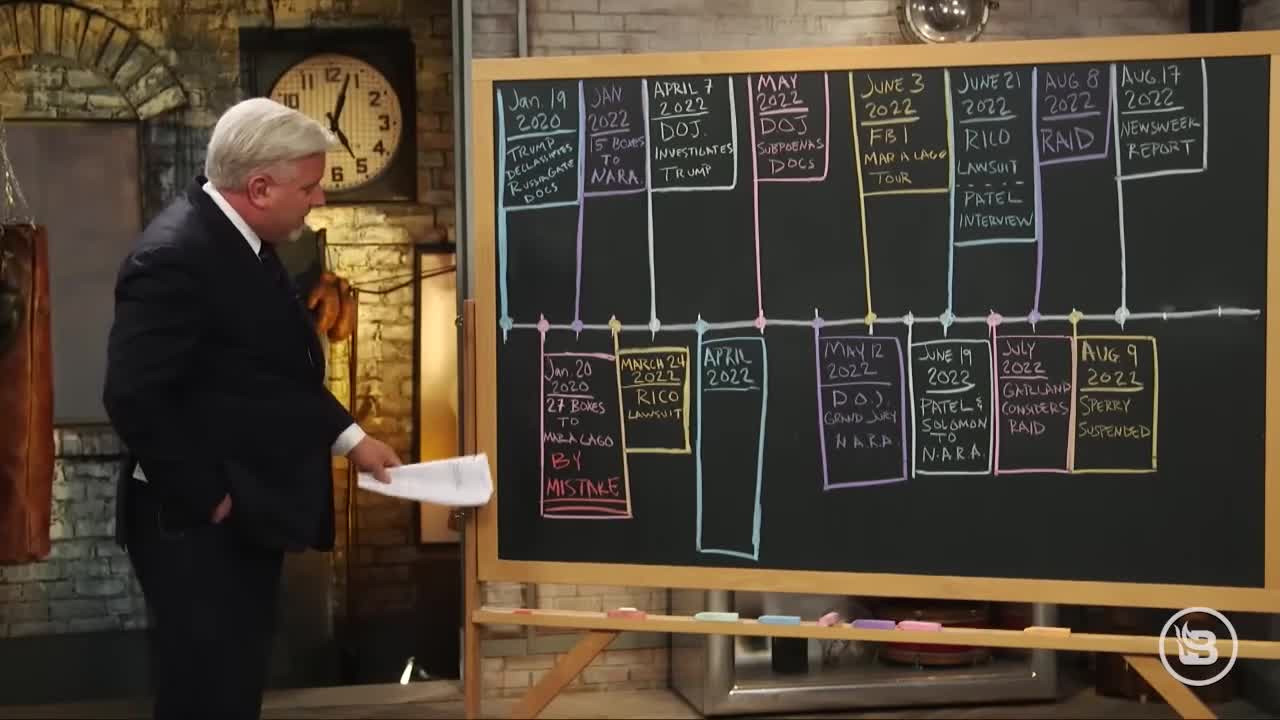 Jan. 19
2020
TRUMP
DECLASSIFIES
RUSSIAGATE
DOCS
JAN
2022
15 BOXES
TO
NARA.
APRIL 7
2022
DOJ.
INVESTIGATES
TRUMP
MAY
2022
DOJ
SUBPOENAS
DOCS
JUNE 3
2022
FBI
MAR A LAGO
TOUR
JUNE 21
2022
RICO
LAWSUIT
PATEL
INTERVIEW
AUG 8
2022
RAID
AUG. 17
2022
NEWSWEEK
REPORT
Jan. 20
2020
27 BOXES
TO
MAR A LAGO
BY
MISTAKE
MARCH 24
2022
RICO
LAWSUIT
APRIL
2022
MAY 12
2022
D.O.J.
GRAND JURY
N.A.R.A.
JUNE 19
2022
PATEL &
SOLOMON
TO
N.A.R.A.
JULY
2022
GARLAND
CONSIDERS
RAID
AUG. 9
2022
SPERRY
SUSPENDED
12
1
2
3
4
5
6
B